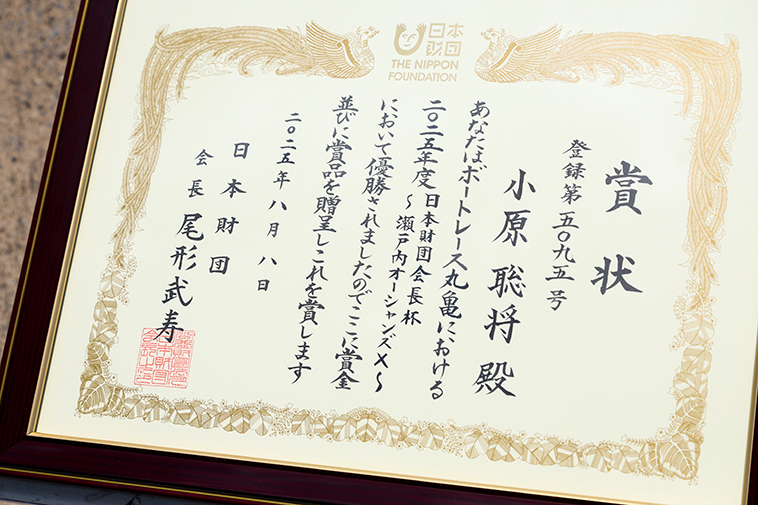 日本
財団
THE NIPPON
FOUNDATION
賞状
登録第五〇九五号
小原聡将殿
あなたはボートレース丸亀における
二〇二五年度日本財団会長杯
～瀬戸内オーシャンズX～
において優勝されましたのでここに賞金
並びに賞品を贈呈しこれを賞します
二〇二五年八月八日
日本財団
会長尾形武寿